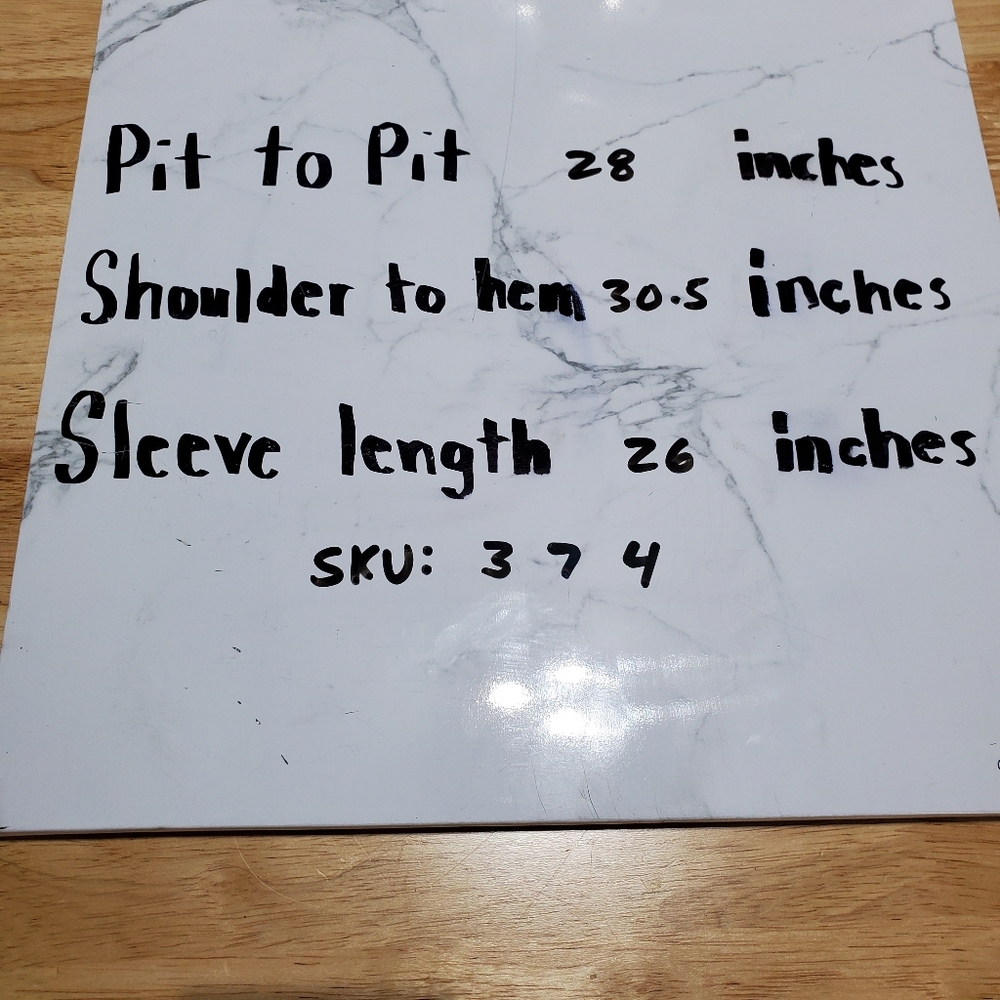 Pit to Pit 28 inches
Shoulder to hem 30.5 inches
Sleeve length 26 inches
SKU: 374